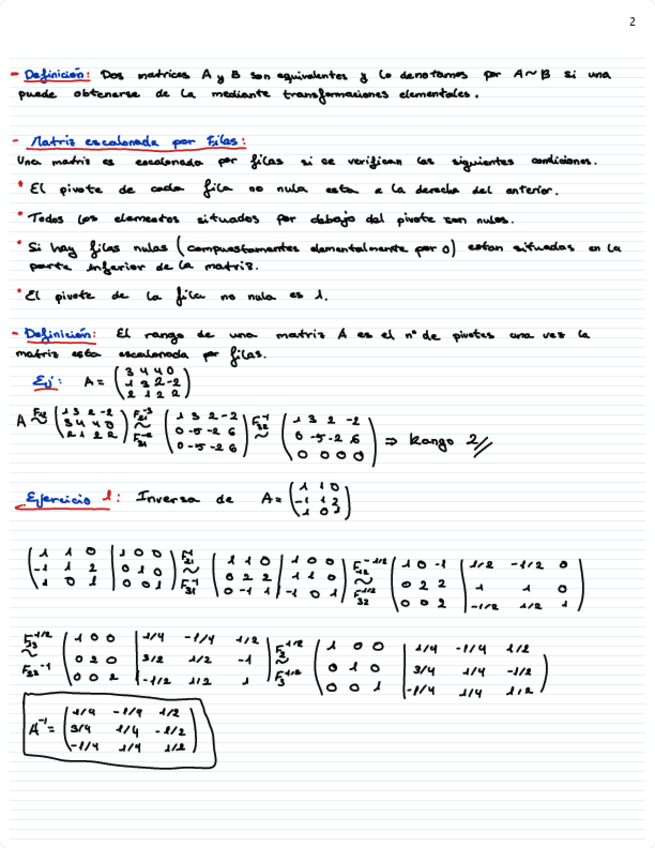 2
- Definición: Dos matrices A y B son equivalentes y lo denotamos por A~B si una
puede obtenerse de la mediante transformaciones elementales.
- Matriz escalonada por Filas:
Una matriz es escalonada por filas si se verifican las siguientes condiciones.
• El pivote de cada fila no nula esta a la derecha del anterior.
• Todos los elementos situados por debajo del pivote son nulos.
• Si hay filas nulas (compuestamentes elementalmente por 0) estan situadas en la
parte inferior de la matriz.
• El pivote de la fila no nula es 1.
- Definición: El rango de una matriz A es el nº de pivotes una vez la
matriz esta escalonada por filas.
Ej: A = (3 4 4 0
1 3 2 -2
2 1 2 2)
A ~ (1 3 2 -2
3 4 4 0
2 1 2 2) F21-3 ~ F31-2 (1 3 2 -2
0 -5 -2 6
0 -5 -2 6) F32-1 ~ (1 3 2 -2
0 -5 -2 6
0 0 0 0) ⇒ Rango 2//
Ejercicio 1: Inversa de A = (1 1 0
-1 1 2
1 0 1)
(1 1 0 | 1 0 0
-1 1 2 | 0 1 0
1 0 1 | 0 0 1) F21 1 ~ F31-1 (1 1 0 | 1 0 0
0 2 2 | 1 1 0
0 -1 1 | -1 0 1) F12-1/2 ~ F32 1/2 (1 0 -1 | 1/2 -1/2 0
0 2 2 | 1 1 0
0 0 2 | -1/2 1/2 1)
~ F23-1 (1 0 0 | 1/4 -1/4 1/2
0 2 0 | 3/2 1/2 -1
0 0 2 | -1/2 1/2 1) F2 1/2 ~ F3 1/2 (1 0 0 | 1/4 -1/4 1/2
0 1 0 | 3/4 1/4 -1/2
0 0 1 | -1/4 1/4 1/2)
A-1 = (1/4 -1/4 1/2
3/4 1/4 -1/2
-1/4 1/4 1/2)